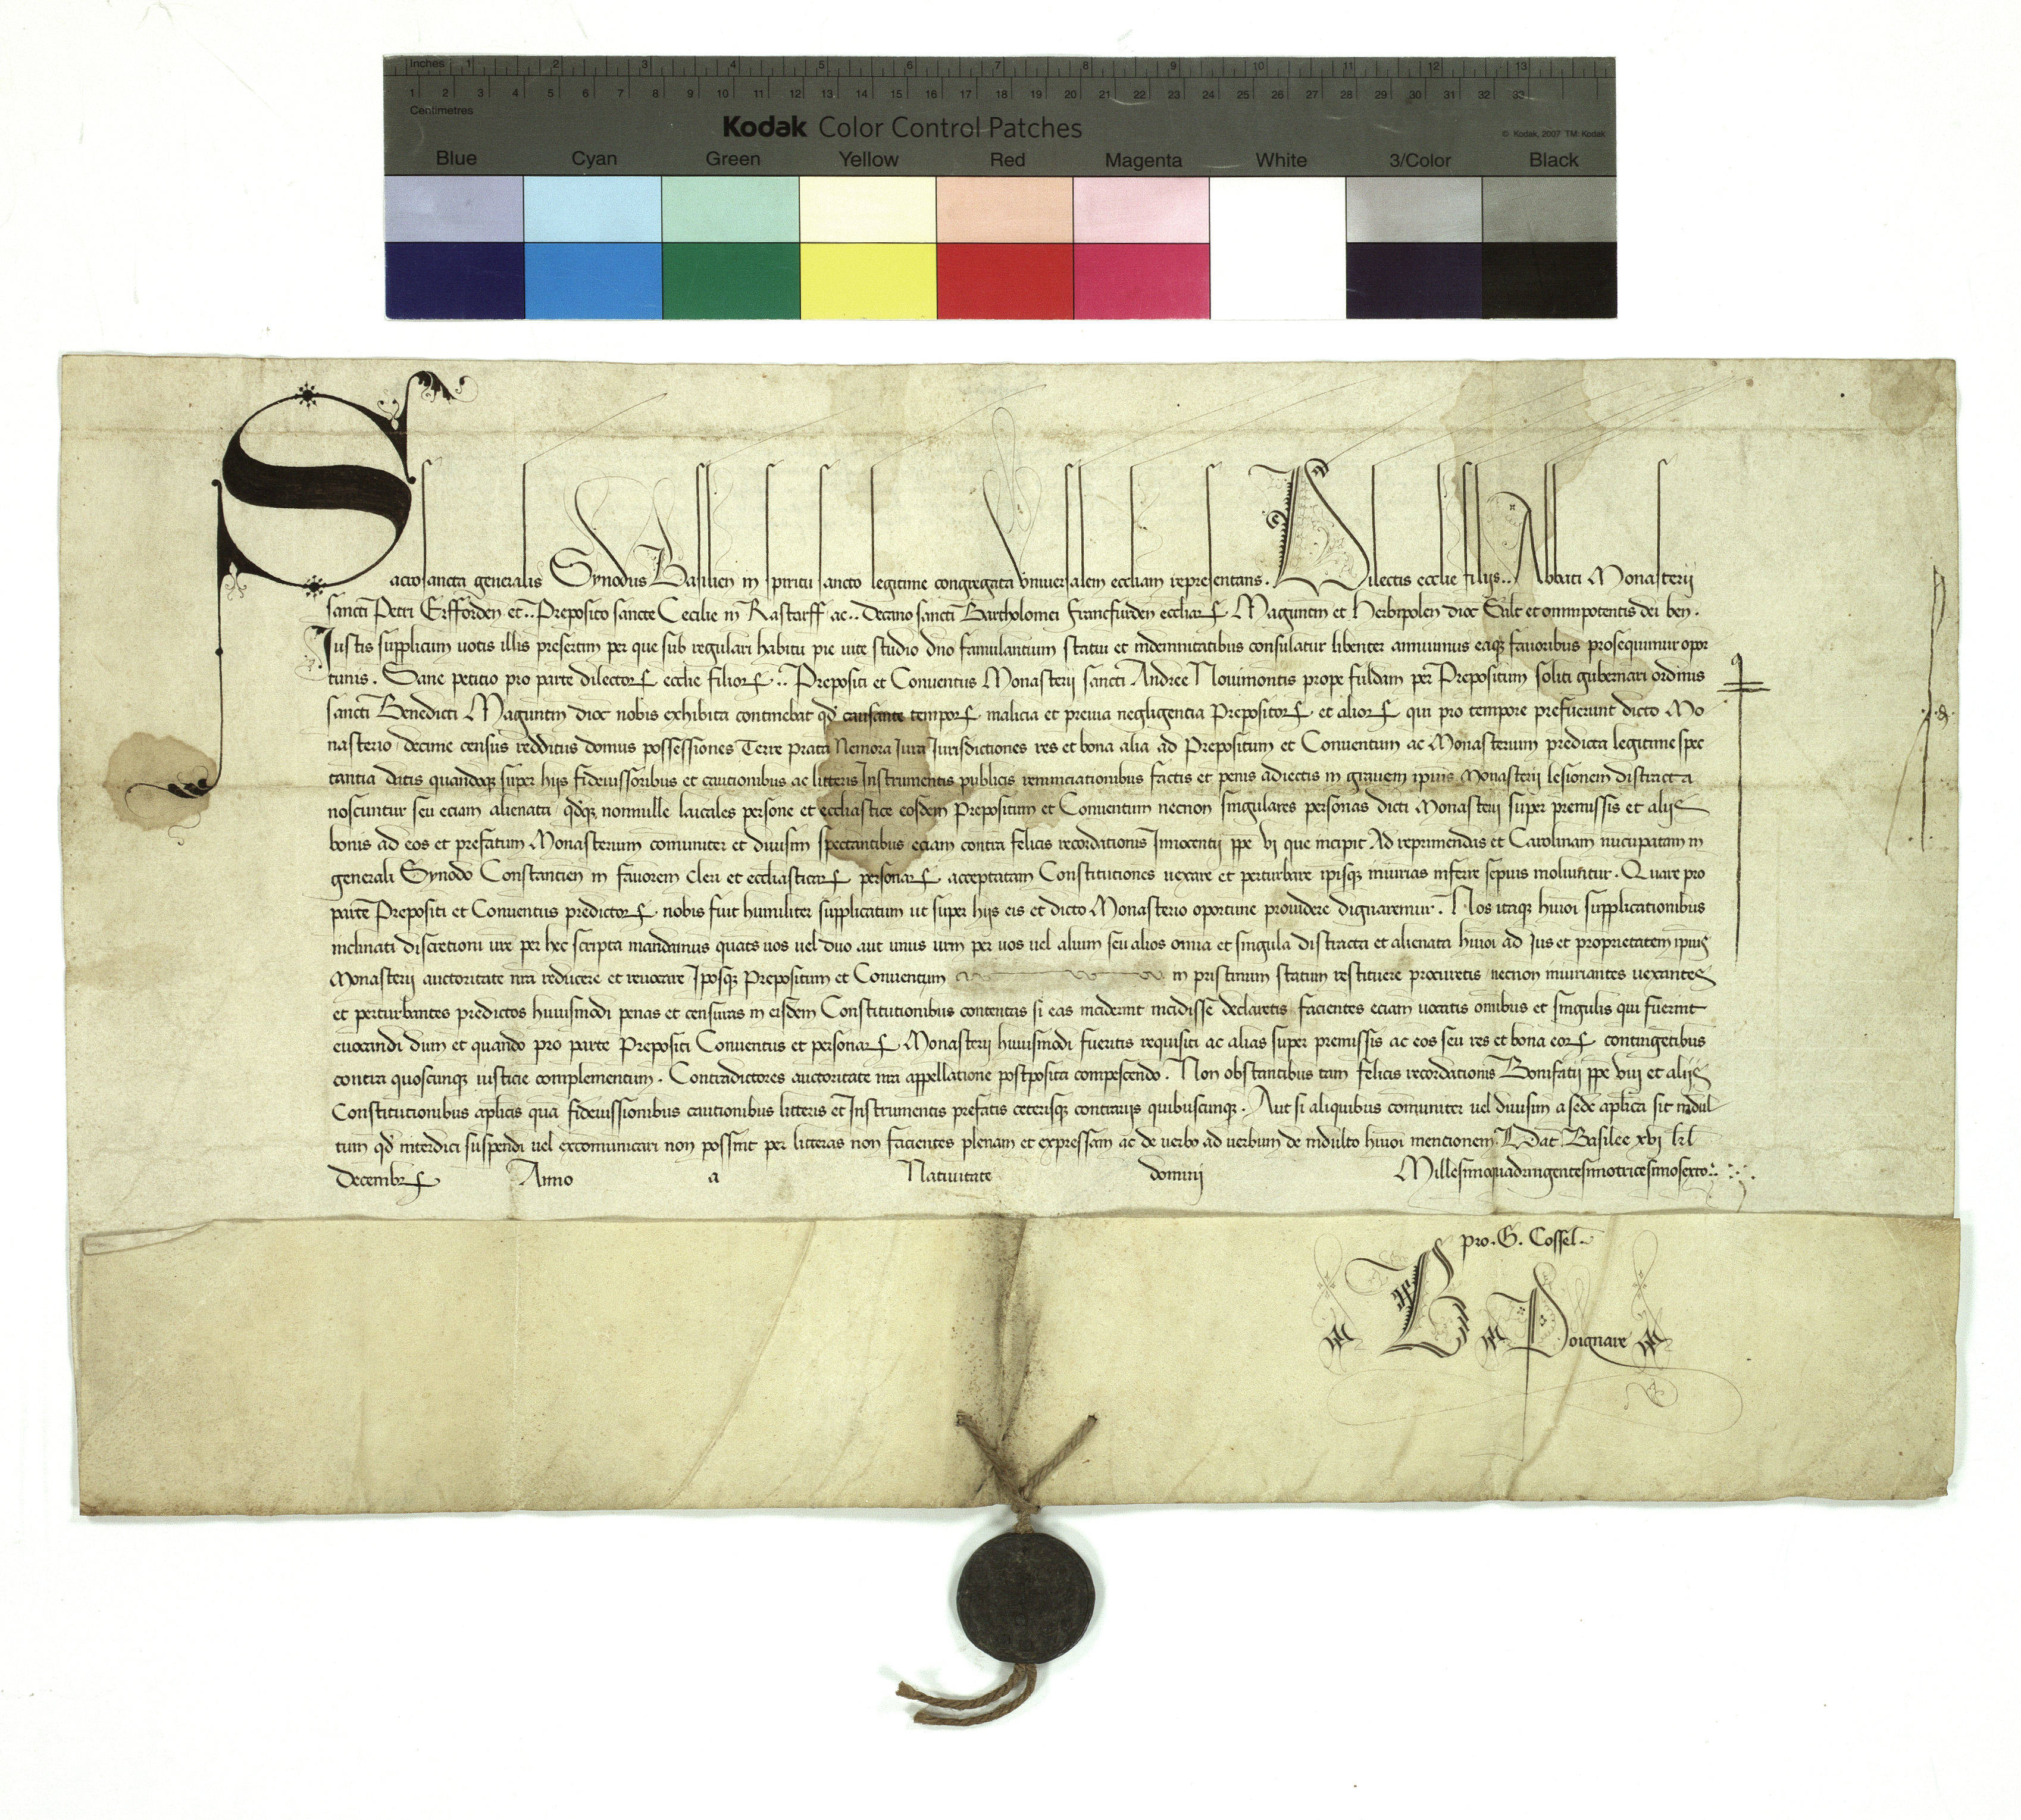 Inches 1 2 3 4 5 6 7 8 9 10 11 12 13
1 2 3 4 5 6 7 8 9 10 11 12 13 14 15 16 17 18 19 20 21 22 23 24 25 26 27 28 29 30 31 32 33
Centimetres
Kodak Color Control Patches
© Kodak, 2007 TM: Kodak
Blue Cyan Green Yellow Red Magenta White 3/Color Black
Sacrosancta generalis Synodus Basilien in spiritu sancto legitime congregata vniuersalem eccliam representans. Dilectis ecclie filijs.. Abbati Monasterij
sancti Petri Erfforden et.. Preposito sancte Cecilie in Rastorff ac.. Decano sancti Bartholomei Francfurden eccliarꝝ Maguntin et Herbipolen dioc Salt et omnipotentis dei ben.
Iustis supplicum uotis illis presertim per que sub regulari habitu pie uite studio dno famulantium statui et indemnitatibus consulatur libenter annuimus eaqꝫ fauoribus prosequimur opor
tunis. Sane petitio pro parte dilectorꝝ ecclie filiorꝝ.. Prepositi et Conuentus Monasterij sancti Andree Nouimontis prope fuldam per Prepositum soliti gubernari ordinis
sancti Benedicti Maguntin dioc nobis exhibita continebat qd causante temporꝝ malicia et preuia negligentia Prepositorꝝ et aliorꝝ qui pro tempore prefuerunt dicto Mo
nasterio decime census redditus domus possessiones Terre prata Nemora Iura Iurisdictiones res et bona alia ad Prepositum et Conuentum ac Monasterium predicta legitime spec
tantia datis quandoqꝫ super hijs fideiussoribus et cautionibus ac litteris Instrumentis publicis renunciationibus factis et penis adiectis in grauem ipius Monasterij lesionem distracta
noscuntur seu eciam alienata qdqꝫ nonnulle laicales persone et eccliastice eosdem Prepositum et Conuentum necnon singulares personas dicti Monasterij super premissis et alijs
bonis ad eos et prefatum Monasterium comuniter et diuisim spectantibus eciam contra felicis recordationis Innocentij ppe vi que incipit Ad reprimendas et Carolinam nucupatam in
generali Synodo Constantien in fauorem cleri et eccliasticarꝝ personarꝝ acceptatam Constitutiones uexare et perturbare ipisqꝫ iniurias inferre sepius moliuntur. Quare pro
parte Prepositi et Conuentus predictorꝝ nobis fuit humiliter supplicatum ut super hijs eis et dicto Monasterio oportune prouidere dignaremur. Nos itaqꝫ huioi supplicationibus
inclinati discretioni ure per hec scripta mandamus quats uos uel duo aut unus urm per uos uel alium seu alios omia et singula distracta et alienata huioi ad Ius et proprietatem ipius
Monasterij auctoritate nra reducere et reuocare Iposqꝫ Prepositum et Conuentum in pristinum statum restituere procuretis necnon iniuriantes uexantes
et perturbantes predictos huiusmodi penas et censuras in eisdem Constitutionibus contentas si eas inciderint incidisse declaretis facientes eciam uocatis omibus et singulis qui fuerint
euocandi dum et quando pro parte Prepositi Conuentus et personarꝝ Monasterij huiusmodi fueritis requisiti ac alias super premissis ac eos seu res et bona eorꝝ contingetibus
contra quoscunqꝫ iusticie complementum. Contradictores auctoritate nra appellatione postposita compescendo. Non obstantibus tam felicis recordationis Bonifatij ppe viij et alijs
Constitutionibus aplicis qua fideiussionibus cautionibus litteris et Instrumentis prefatis ceterisqꝫ contrarijs quibuscunqꝫ. Aut si aliquibus comuniter uel diuisim a sede aplica sit indul
tum qd interdici suspendi uel excomunicari non possint per litteras non facientes plenam et expressam ac de uerbo ad uerbum de indulto huioi mencionem. Dat Basilee xvi kl
Decembrꝝ Anno a Natiuitate domini Millesimoquadringentesimotricesimosexto
pro. G. Cossel.
B Poignare